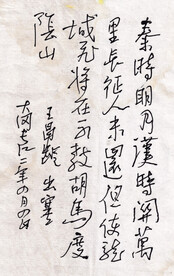 秦時明月漢時關萬
里長征人未還但使龍
城飛將在不教胡馬度
陰山
王昌齡 出塞
二年